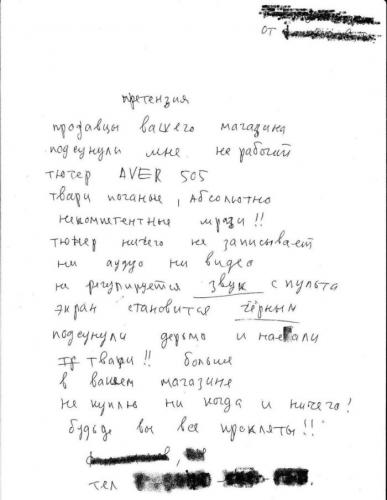 от
претензия
продавцы вашего магазина
подсунули мне не рабочий
тютер AVER 505
твари поганые, абсолютно
некомпетентные мрази!!
тюнер ничего не записывает
ни аудуо ни видео
на регулируется звук с пульта
экран становится чёрным
подсунули дерьмо и на
твари!! больше
в вашем магазине
не куплю ни когда и ничего!
будьде вы все прокляты!!
тел